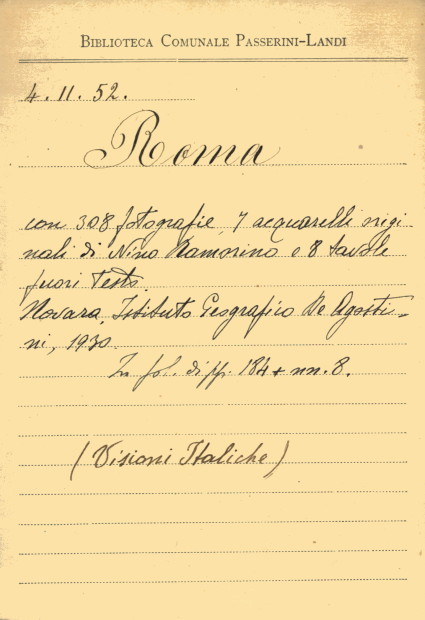 BIBLIOTECA COMUNALE PASSERINI-LANDI
4. 11. 52.
Roma
con 308 fotografie, 7 acquarelli origi
nali di Nino Ramorino e 8 tavole
fuori testo.
Novara, Istituto Geografico De Agosti-
ni, 1930.
In fol. di pp. 184 + nn. 8.
(Visioni Italiche)